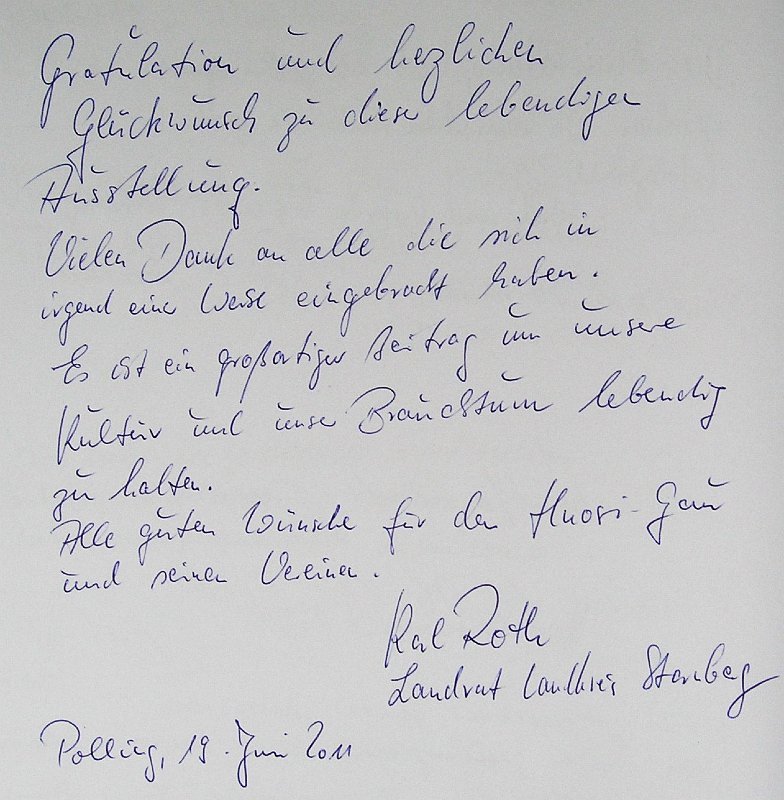 Gratulation und herzlichen
Glückwunsch zu dieser lebendigen
Ausstellung.
Vielen Dank an alle die sich in
irgend einer Weise eingebracht haben.
Es ist ein großartiger Beitrag um unsere
Kultur und unser Brauchtum lebendig
zu halten.
Alle guten Wünsche für den Huosi-Gau
und seinen Vereinen.
Karl Roth
Landrat Landkreis Starnberg
Polling, 19. Juni 2011